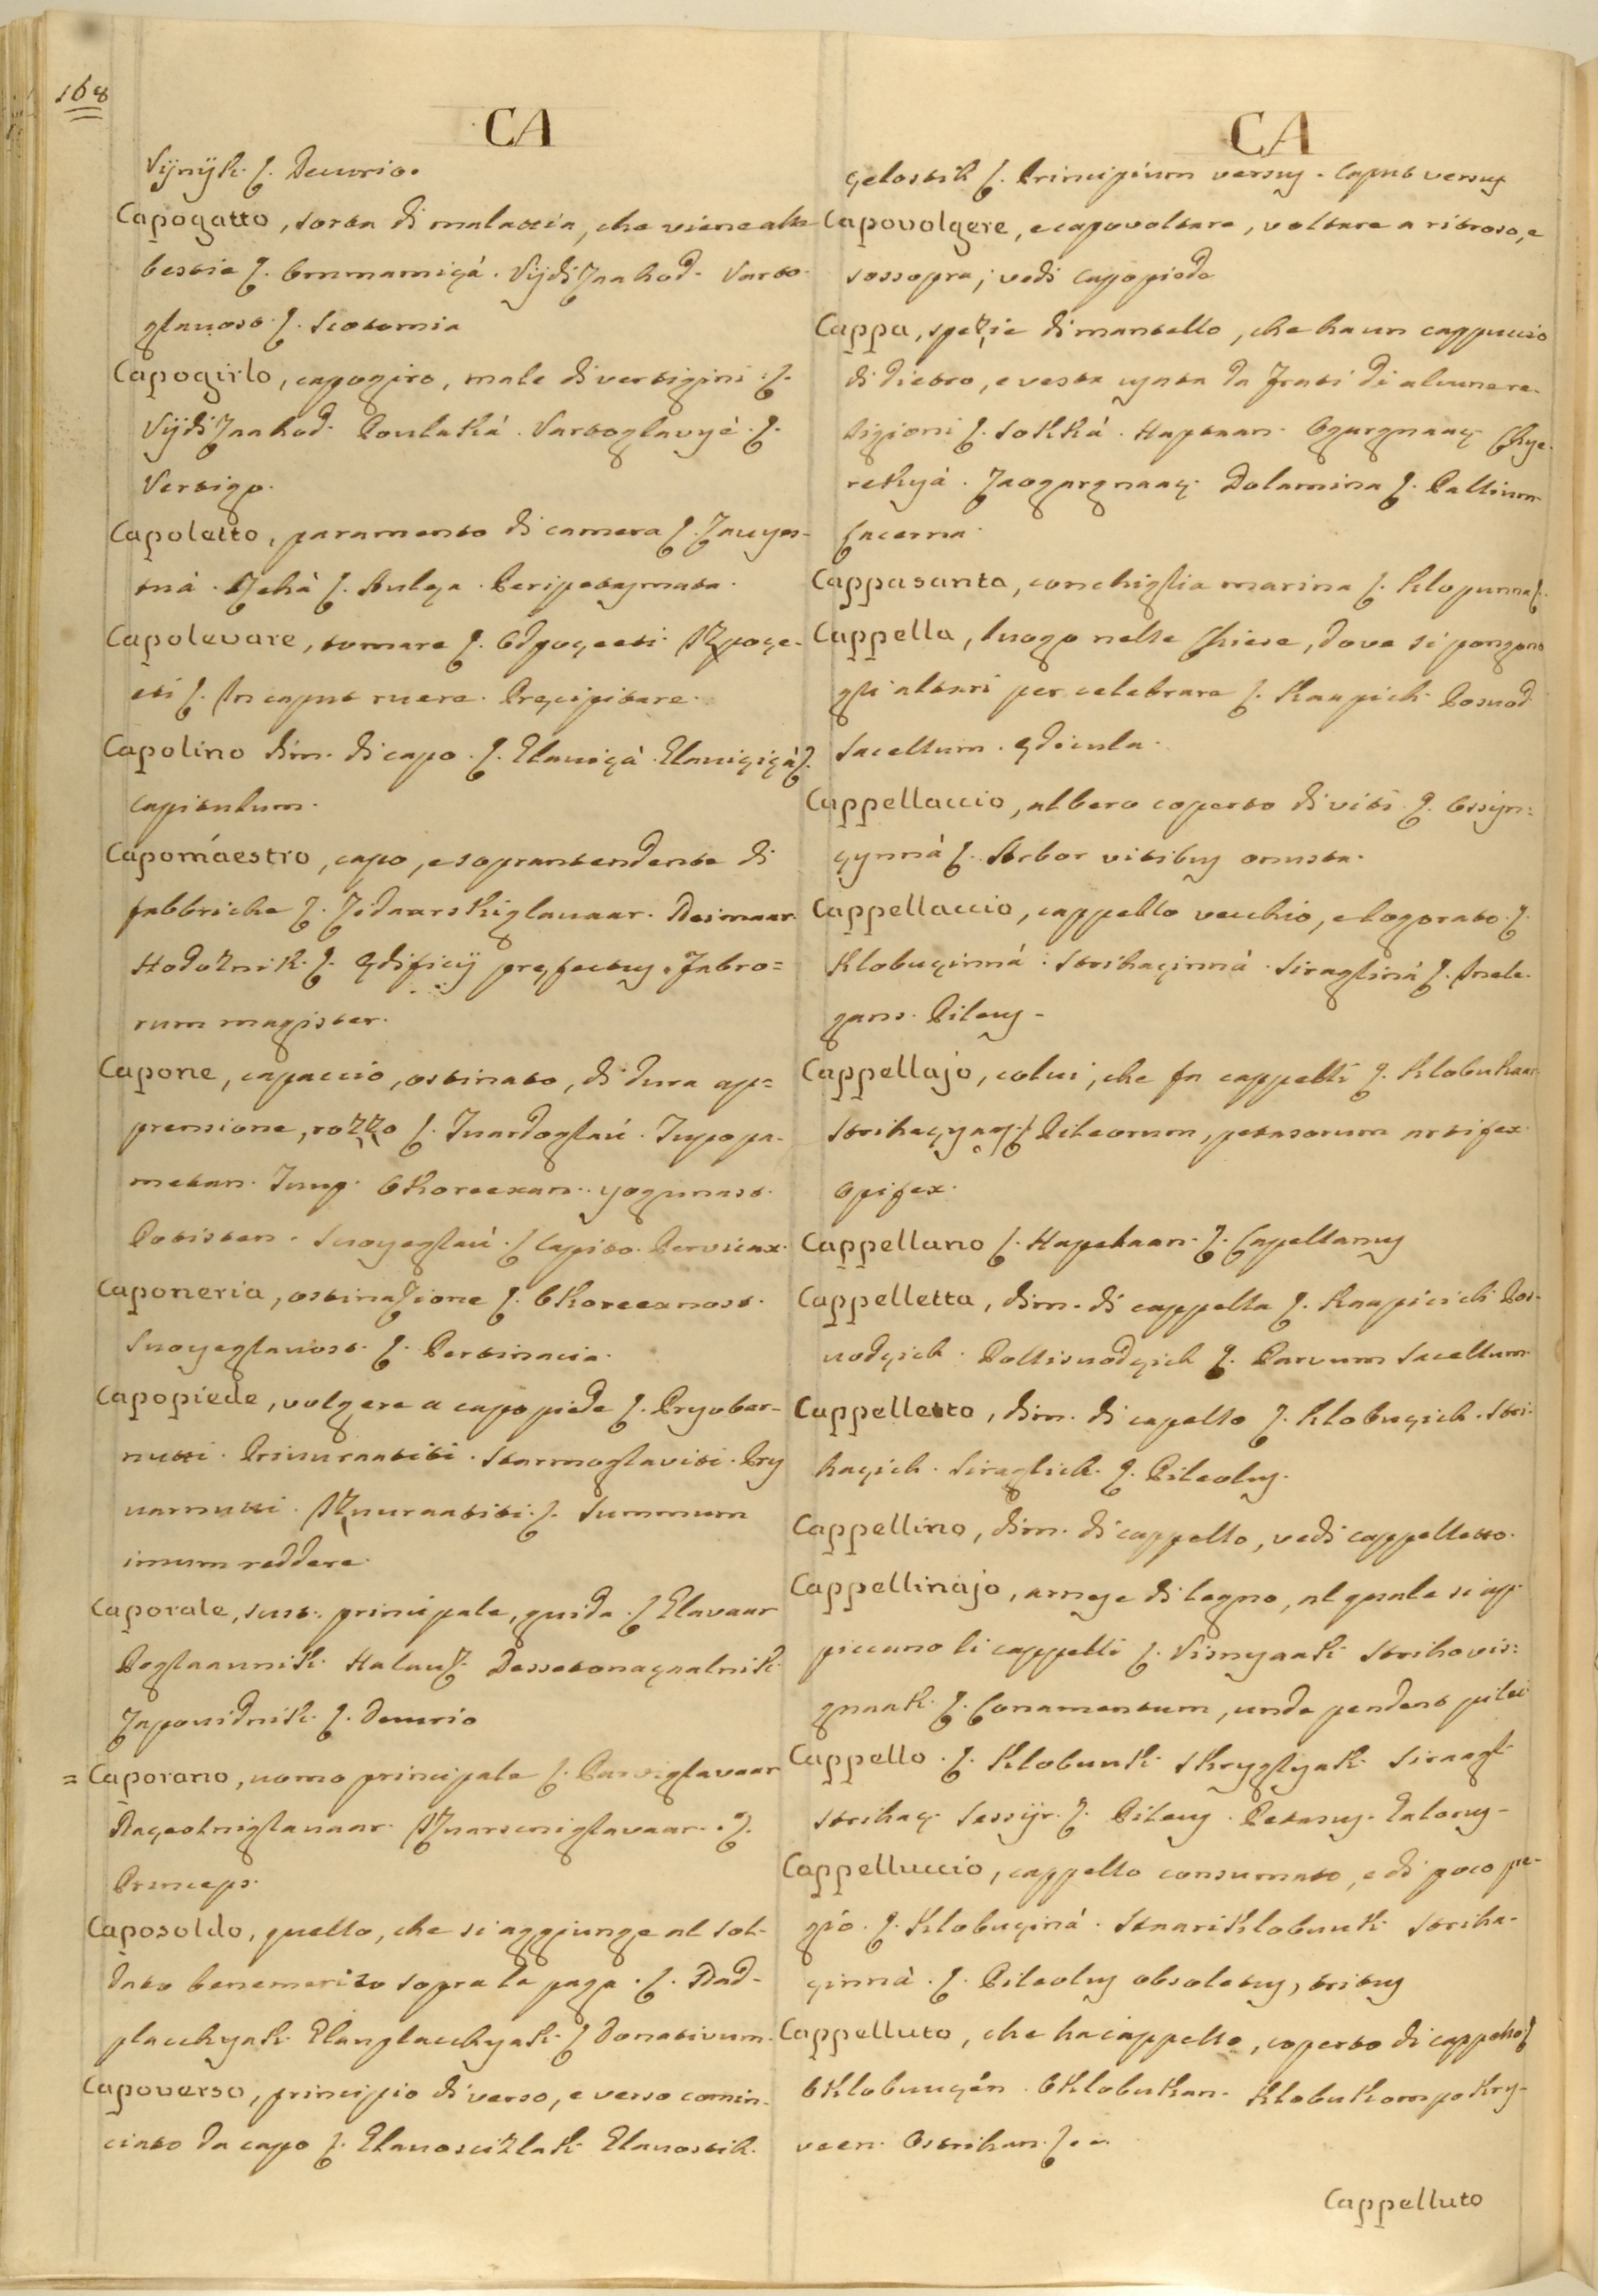 168
CA
Vijnijk. ſ. Decurio.
Capogatto, sorta di malattia, che viene alle
bestie ſ. Ommamiçà. Vijdizaahod. Varto-
glauost. ſ. Scotomia
Capogirlo, capogiro, male di vertigini. ſ.
Vijdizaahod. Poulakà. Vartoglavyè. ſ.
Vertigo.
Capoletto, paramento di camera ſ. Zauyes-
mà. ſ. Aulça. Peripetasmata.
Capolevare, tomare ſ. Odpoçeeti. Izpoçe-
eti ſ. In caput ruere. Precipitare.
Capolino dim. di capo. ſ. Glauiçà. Glauiçiçà ſ.
Capitulum.
Capomaestro, capo, e soprantendente di
fabbriche ſ. Zidaarskiglauaar. Neimaar.
Hodoznik. ſ. Ędificij pręfectus. Fabro=
rum magister.
Capone, capaccio, ostinato, di dura ap=
prensione, rozzo ſ. Tuardoglaú. Tupopa-
metan. Tuup. Okoreexan. yogunast.
Potisten. Suoyeglaú. ſ. Capito. Pervicax.
Caponeria, ostinazione ſ. Okoreexanost.
Suoyeglauost. ſ. Pertinacia.
Capopiede, volgere a capo piede ſ. Pryobar-
nutti. Priuuraatiti. Starmoglaviti. Pry
uarnutti. Izuuraatiti. ſ. Summum
imum reddere.
Caporale, sust. principale, guida. ſ. Glavaar
Poglaaunik. Halauz. Dessetonaçaalnik.
Zapouidnik. ſ. Decurio
= Caporano, uomo principale ſ. Parviglavaar
Naçeolniglauaar. Izuarsniglavaar. ſ.
Princeps.
Caposoldo, quello, che si aggiunge al sol-
dato benemerito sopra la paga. ſ. Nad-
placchyak. Glauplacchyak. ſ. Donativum.
Capoverso, principio di verso, e verso comin-
ciato da capo ſ. Glauoscizlak. Glauostih.
CA
çelostih ſ. Principium versus. Caput versus
Capovolgere, e capovoltare, voltare a ritroso, e
sossopra; vedi capopiede
Cappa, spezie di mantello, che ha un cappuccio
di dietro, e veste usata da Frati di alcune re-
ligioni ſ. Sokkà. Haptaan. Ogargnaaç. Chye-
rekyà. Zaogargnaaç. Dolamina ſ. Pallium.
Lacerna.
Cappasanta, conchiglia marina ſ. Klopunna ſ.
Cappella, luogo nelle Chiese, dove si pongono
gli altari per celebrare ſ. Kaapich. Posuod.
Sacellum. ędicula.
Cappellaccio, albero coperto di viti. ſ. Ossijn=
çynnà ſ. Arbor vitibus onusta.
Cappellaccio, cappello vecchio, e logorato. ſ.
Klobuçinnà. Strihaçinnà. Siraglinà ſ. Inele-
gans. Pileus.
Cappellajo, colui, che fa cappelli ſ. Klobukaar.
Strihaçyaar. ſ. Pileorum, petasorum artifex.
Opifex.
Cappellano ſ. Hapelaan. ſ. Capellanus
Cappelletta, dim. di cappella ſ. Kaapicich. Pos-
uodçich. Pollisuodçich ſ. Parvum sacellum.
Cappelletto, dim. di capello ſ. Klobuçich. Stri-
haçich. Siraglich. ſ. Pileolus.
Cappellino, dim. di cappello, vedi cappelletto.
Cappellinajo, arnese di legno, al quale si ap
piccano li cappelli ſ. Visnyaak. Strihovis=
gnaak. ſ. Conamentum, unde pendent pilei
Cappello. ſ. Klobuuk. Skryglyak. Siraagl.
Strihaç. Sessijr. ſ. Pileus. Petasus. Galerus.
Cappelluccio, cappello consumato, e di poco pre-
gio. ſ. Klobuçinà. Staariklobuuk. Striha-
çinnà. ſ. Pileolus obsoletus, tritus
Cappelluto, che ha cappello, coperto di cappello ſ
Oklobuuçèn. Oklobukan. Klobukompokry-
veen. Ostrihan. ſ.
Cappelluto